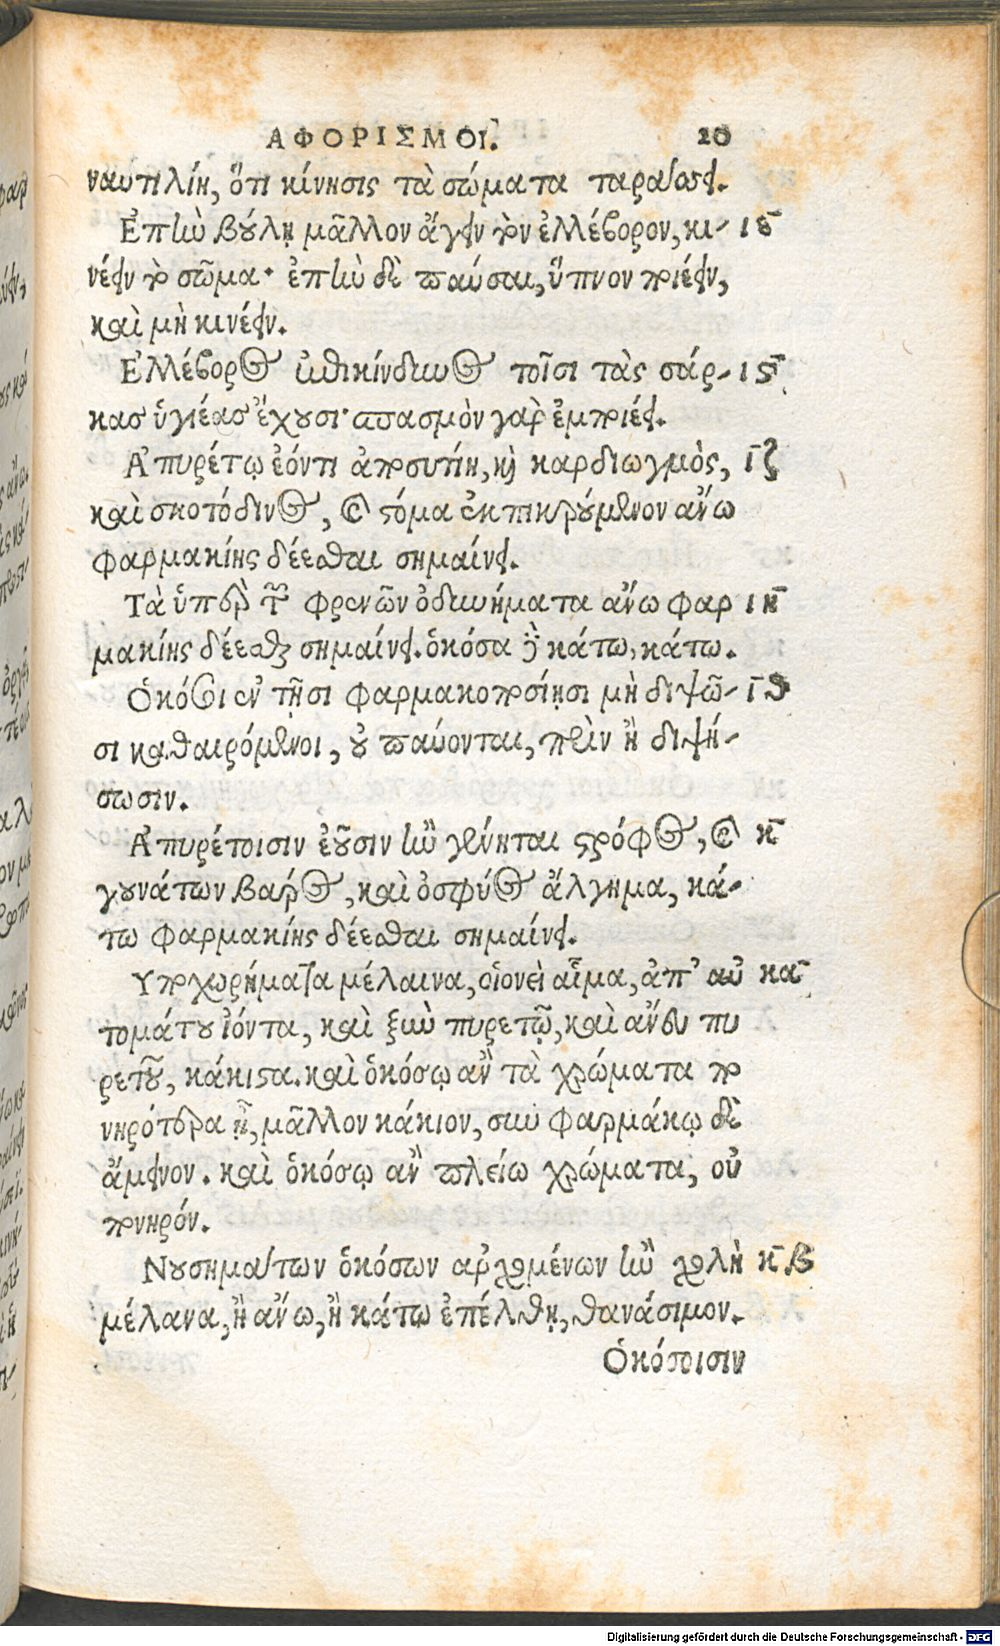 ΑΦΟΡΙΣΜΟΙ. 20
ναυτιλίη, ὅτι κίνησις τὰ σώματα ταράσσει.
Ἐπὴν βούλῃ μᾶλλον ἄγειν τὸν ἐλλέβορον, κι- ιε
νέειν τὸ σῶμα· ἐπὴν δὲ παύσαι, ὕπνον ποιέειν,
καὶ μὴ κινέειν.
Ἐλλέβορος ἐπικίνδυνος τοῖσι τὰς σάρ- ιϛ
κας ὑγιέας ἔχουσι· σπασμὸν γὰρ ἐμποιέει.
Ἀπυρέτῳ ἐόντι ἀποσιτίη, καὶ καρδιωγμὸς, ιζ
καὶ σκοτόδινος, καὶ στόμα ἐκπικρούμενον ἄνω
φαρμακίης δέεσθαι σημαίνει.
Τὰ ὑπὲρ τῶν φρενῶν ὀδυνήματα ἄνω φαρ ιη
μακίης δέεσθαι σημαίνει. ὁκόσα δὲ κάτω, κάτω.
Ὁκόσοι ἐν τῇσι φαρμακοποσίῃσι μὴ διψῶ- ιθ
σι καθαιρόμενοι, οὐ παύονται, πρὶν ἢ διψή-
σωσιν.
Ἀπυρέτοισιν ἐοῦσιν ἢν γένηται στρόφος, καὶ κ
γουνάτων βάρος, καὶ ὀσφύος ἄλγημα, κά-
τω φαρμακίης δέεσθαι σημαίνει.
Υποχωρήματα μέλαινα, οἱονεὶ αἷμα, ἀπ' αὐ κα
τομάτου ἰόντα, καὶ ξὺν πυρετῷ, καὶ ἄνευ πυ
ρετοῦ, κάκιστα. καὶ ὁκόσῳ ἂν τὰ χρώματα πο
νηρότερα ᾖ, μᾶλλον κάκιον, σὺν φαρμάκῳ δὲ
ἄμεινον. καὶ ὁκόσῳ ἂν πλείω χρώματα, οὐ
πονηρόν.
Νουσημάτων ὁκόσων ἀρχομένων ἢν χολὴ κβ
μέλανα, ἢ ἄνω, ἢ κάτω ἐπέλθῃ, θανάσιμον.
Ὁκόσοισιν
Digitalisierung gefördert durch die Deutsche Forschungsgemeinschaft - DFG